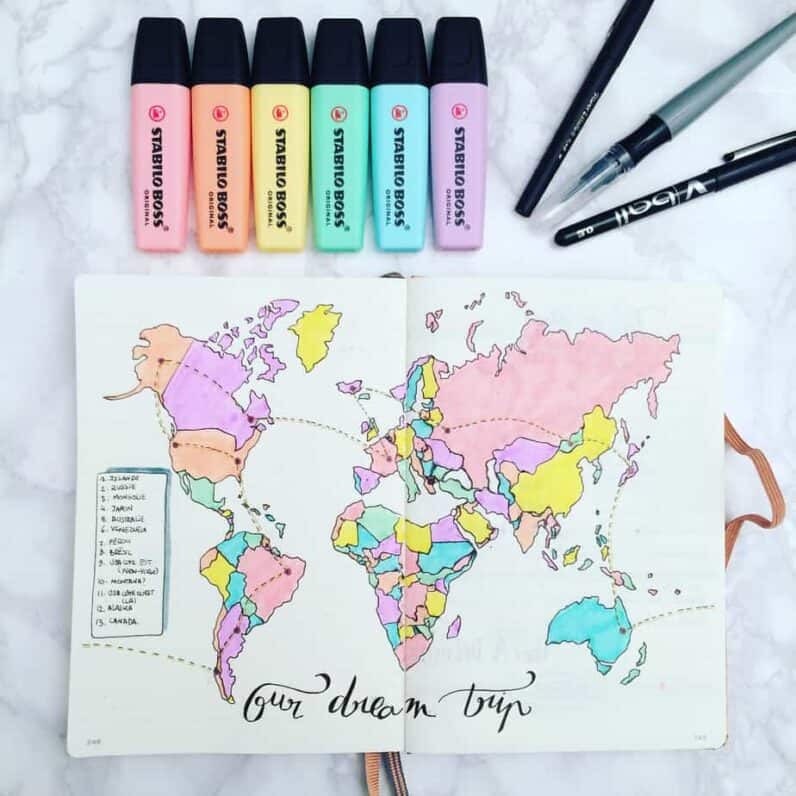 STABILO BOSS
ORIGINAL
STABILO BOSS
ORIGINAL
STABILO BOSS
ORIGINAL
STABILO BOSS
ORIGINAL
STABILO BOSS
ORIGINAL
STABILO BOSS
ORIGINAL
V-ball 0.5
1. ISLANDE
2. RUSSIE
3. MONGOLIE
4. JAPON
5. AUSTRALIE
6. VENEZUELA
7. PÉROU
8. BRÉSIL
9. USA CÔTE EST
(NEW-YORK)
10. MONTANA)
11. USA CÔTE OUEST
(LA)
12. ALASKA
13. CANADA.
Our dream trip